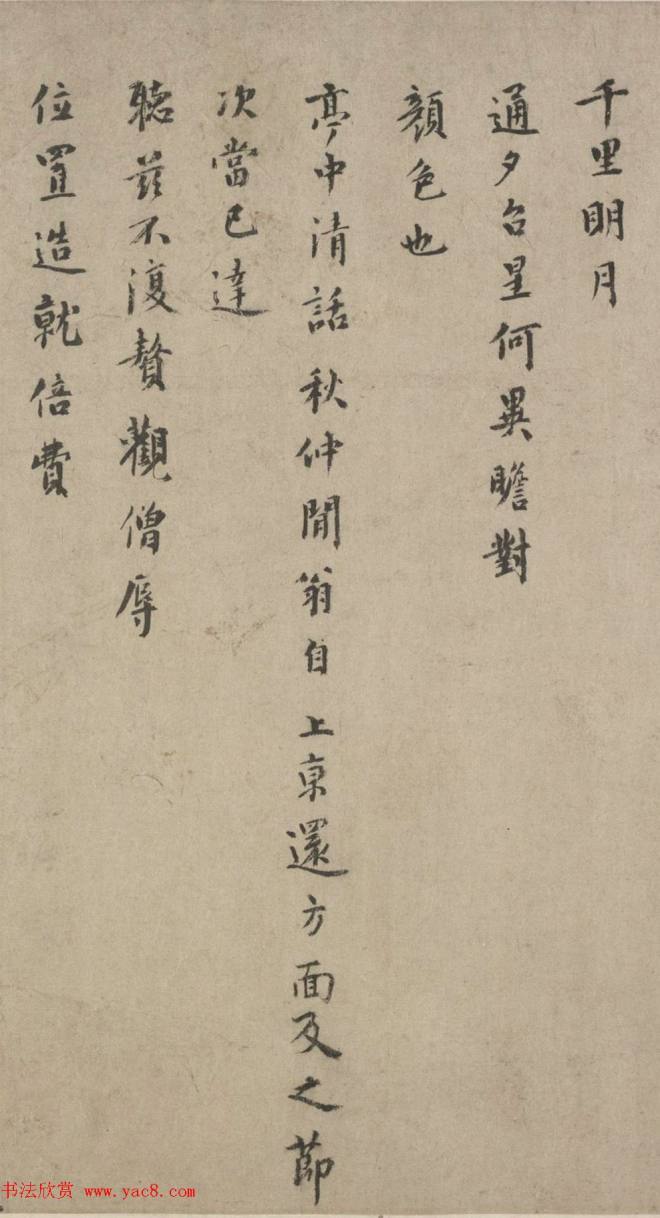 千里明月
通夕台星何異瞻對
顏色也
亭中清話秋仲閒翁自 上京還方面及之節
次當已達
聽茲不復贅觀僧辱
位置造就倍費
书法欣赏 www.yac8.com